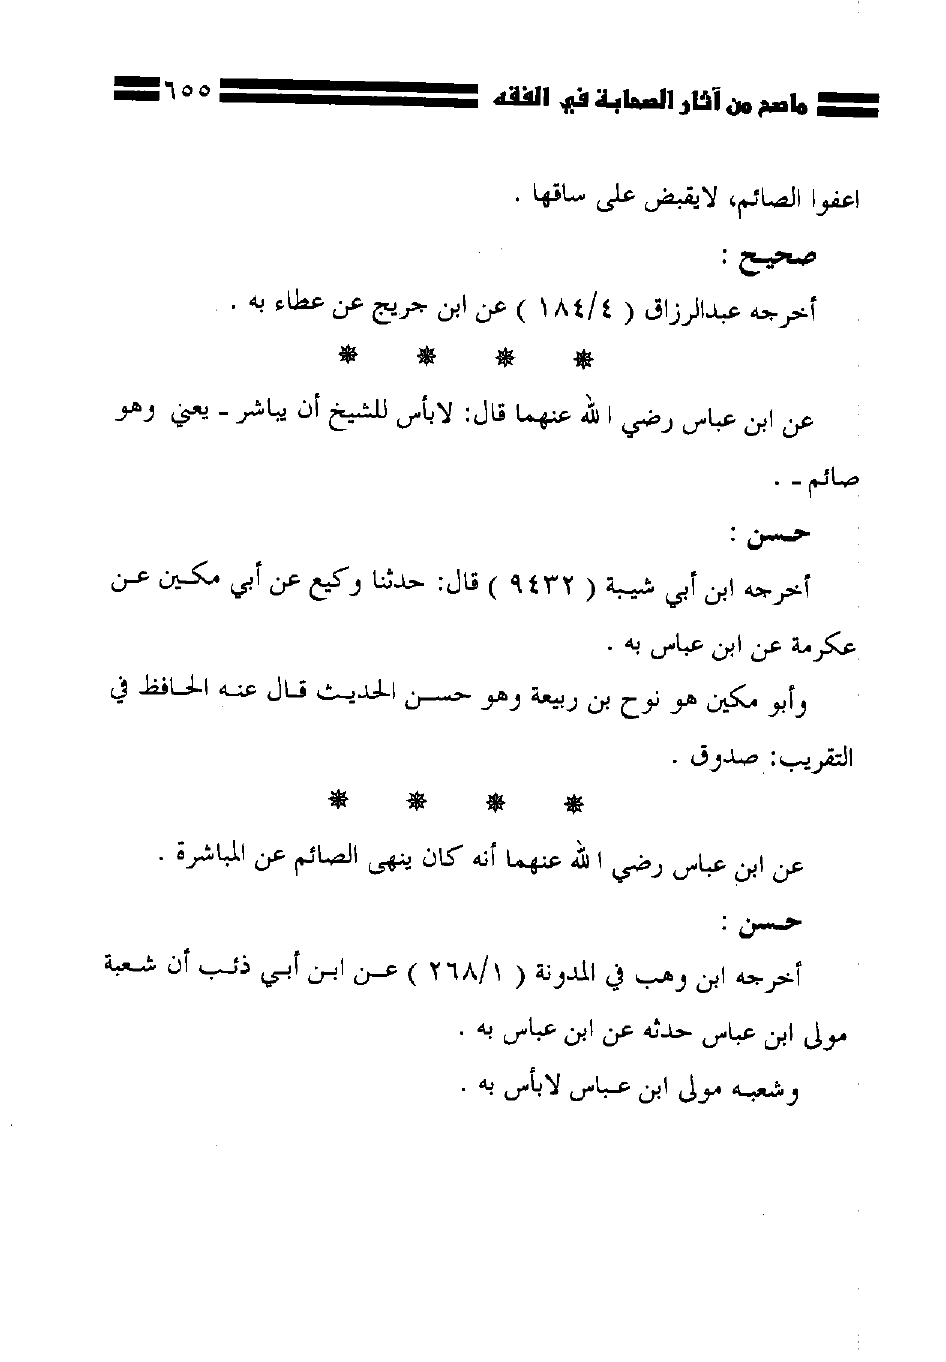 ماصح من آثار الصحابة في الفقه ٦٥٥
اعفوا الصائم، لايقبض على ساقها .
صحيح :
أخرجه عبدالرزاق ( ١٨٤/٤ ) عن ابن جريج عن عطاء به .
عن ابن عباس رضي الله عنهما قال: لابأس للشيخ أن يباشر ـ يعني وهو
صائم ـ .
حسن :
أخرجه ابن أبي شيبة ( ٩٤٣٢ ) قال: حدثنا وكيع عن أبي مكين عن
عكرمة عن ابن عباس به .
وأبو مكين هو نوح بن ربيعة وهو حسن الحديث قال عنه الحافظ في
التقريب: صدوق .
عن ابن عباس رضي الله عنهما أنه كان ينهى الصائم عن المباشرة .
حسن :
أخرجه ابن وهب في المدونة ( ٢٦٨/١ ) عن ابن أبي ذئب أن شعبة
مولى ابن عباس حدثه عن ابن عباس به .
وشعبه مولى ابن عباس لابأس به .